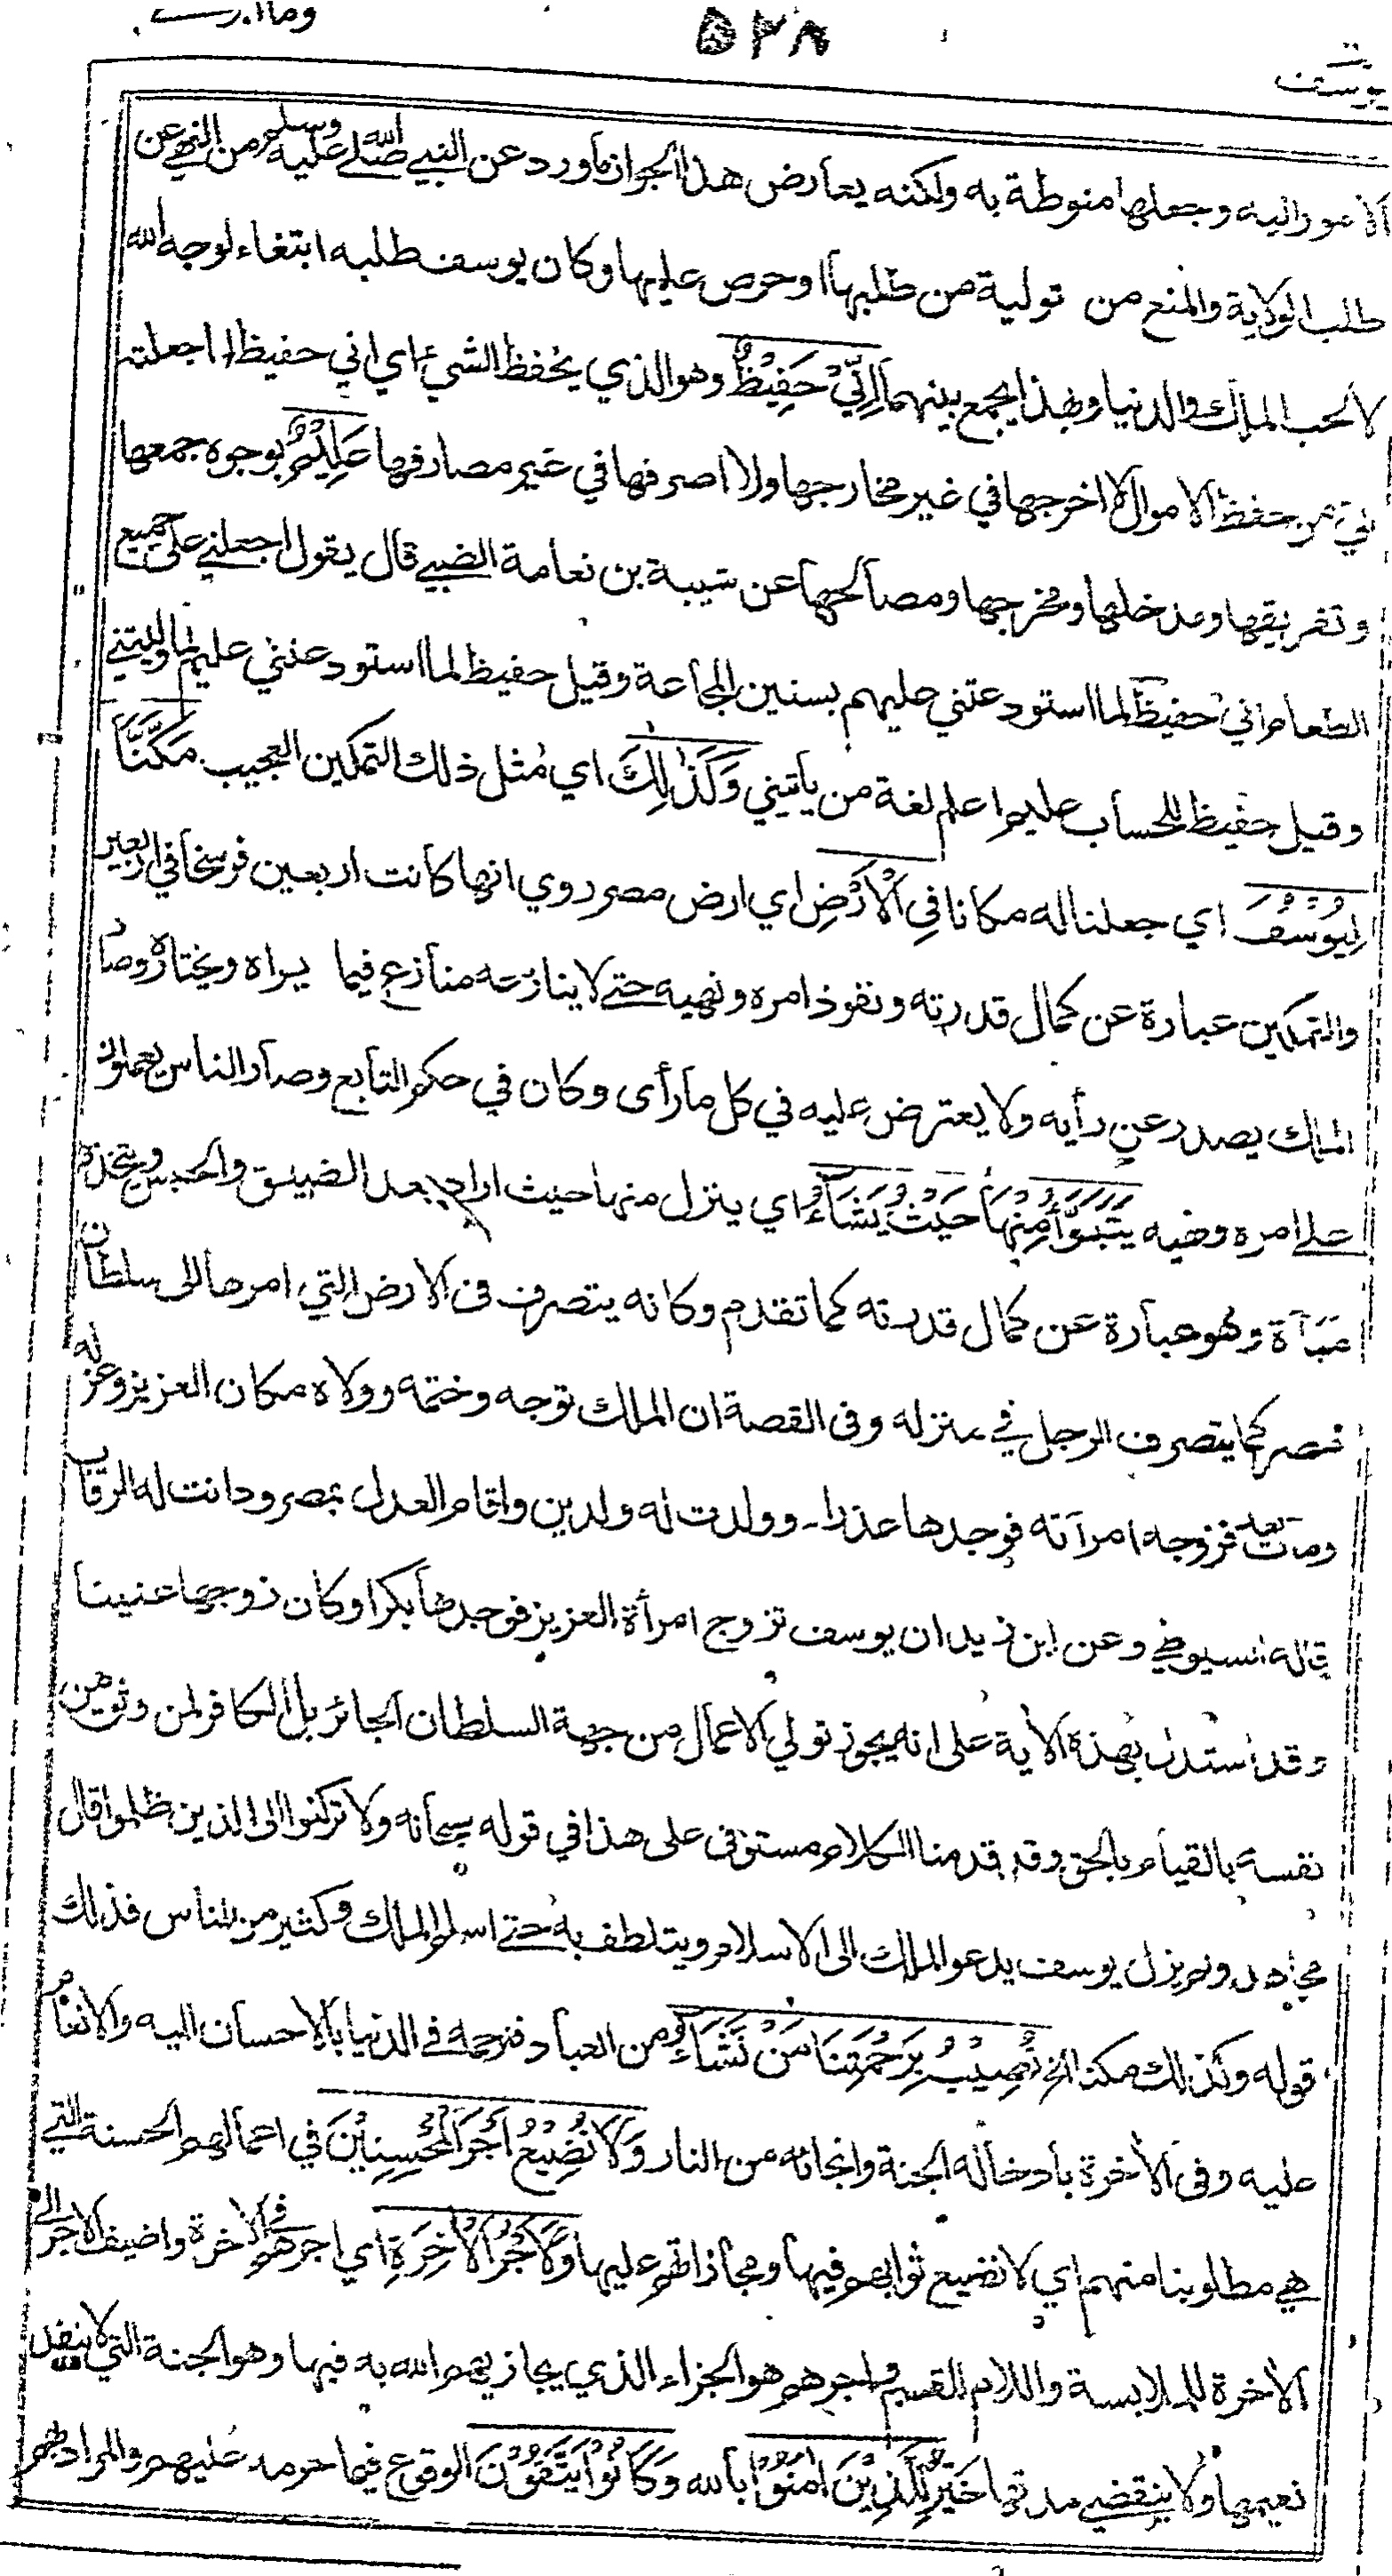 وما ابرئ
۵۲۸
يوسف
الامور اليه وجعلها منوطة به ولكنه يعارض هذا الجواز ما ورد عن النبي صلى الله عليه وسلم من النهي عن
طلب الولاية والمنع من تولية من طلبها او حرص عليها وكان يوسف طلبه ابتغاء لوجه الله
لا لحب الملك والدنيا وبهذا يجمع بينهما اِنِّيْ حَفِيْظٌ وهو الذي يحفظ الشيء اي اني حفيظ لما جعلته
لي من حفظ الاموال لا اخرجها في غير مخارجها ولا اصرفها في غير مصارفها عَلِيْمٌ بوجوه جمعها
وتفريقها ومدخلها ومخرجها ومصالحها عن شيبة بن نعامة الضبي قال يقول اجعلني على جميع
الطعام اني حفيظ لما استودعتني عليم بسنين المجاعة وقيل حفيظ لما استودعتني عليم لما وليتني
وقيل حفيظ للحساب عليم اعلم لغة من يأتيني وَكَذٰلِكَ اي مثل ذلك التمكين العجيب مَكَّنَّا
لِيُوْسُفَ اي جعلنا له مكانا فِي الْاَرْضِ اي ارض مصر روي انها كانت اربعين فرسخا في اربعين
والتمكين عبارة عن كمال قدرته ونفوذ امره ونهيه حتى لا ينازعه منازع فيما يراه ويختاره وصار
الملك يصدر عن رأيه ولا يعترض عليه في كل ما رأى وكان في حكم التابع وصار الناس يعملون
على امره ونهيه يَتَبَوَّأُ مِنْهَا حَيْثُ يَشَاۤءُ اي ينزل منها حيث اراد بعد الضيق والحبس ويتخذه
مباءة وهو عبارة عن كمال قدرته كما تقدم وكانه يتصرف فى الارض التي امرها الى سلطان
مصر كما يتصرف الرجل في منزله وفى القصة ان الملك توجه وختمه وولاه مكان العزيز وعزله
ومات بعد فزوجه امرأته فوجدها عذراء وولدت له ولدين واقام العدل بمصر ودانت له الرقاب
قاله السيوطي وعن ابن زيد ان يوسف تزوج امرأة العزيز فوجدها بكرا وكان زوجها عنينا
وقد استدل بهذه الآية على انه يجوز تولي الاعمال من جهة السلطان الجائر بل الكافر لمن وثق من
نفسه بالقيام بالحق وقد قدمنا الكلام مستوفى على هذا في قوله سبحانه ولا تركنوا الى الذين ظلموا قال
مجاهد ولم يزل يوسف يدعو الملك الى الاسلام ويتلطف به حتى اسلم الملك وكثير من الناس فذلك
قوله وكذلك مكنا الخ نُصِيْبُ بِرَحْمَتِنَا مَنْ نَّشَاۤءُ من العباد فنرحمه في الدنيا بالاحسان اليه والانعام
عليه وفى الآخرة بادخاله الجنة وانجائه من النار وَلَا نُضِيْعُ اَجْرَ الْمُحْسِنِيْنَ في اعمالهم الحسنة التي
هي مطلوبنا منهم اي لا نضيع ثوابهم فيها ومجازاتهم عليها وَلَاَجْرُ الْاٰخِرَةِ اي اجرهم في الآخرة واضيف الاجر الى
الآخرة للملابسة واللام للقسم واجرهم هو الجزاء الذي يجازيهم الله به فيها وهو الجنة التي لا ينفد
نعيمها ولا ينقضي مدتها خَيْرٌ لِّلَّذِيْنَ اٰمَنُوْا بالله وَكَانُوْا يَتَّقُوْنَ الوقوع فيما حرمه عليهم والمراد بهم